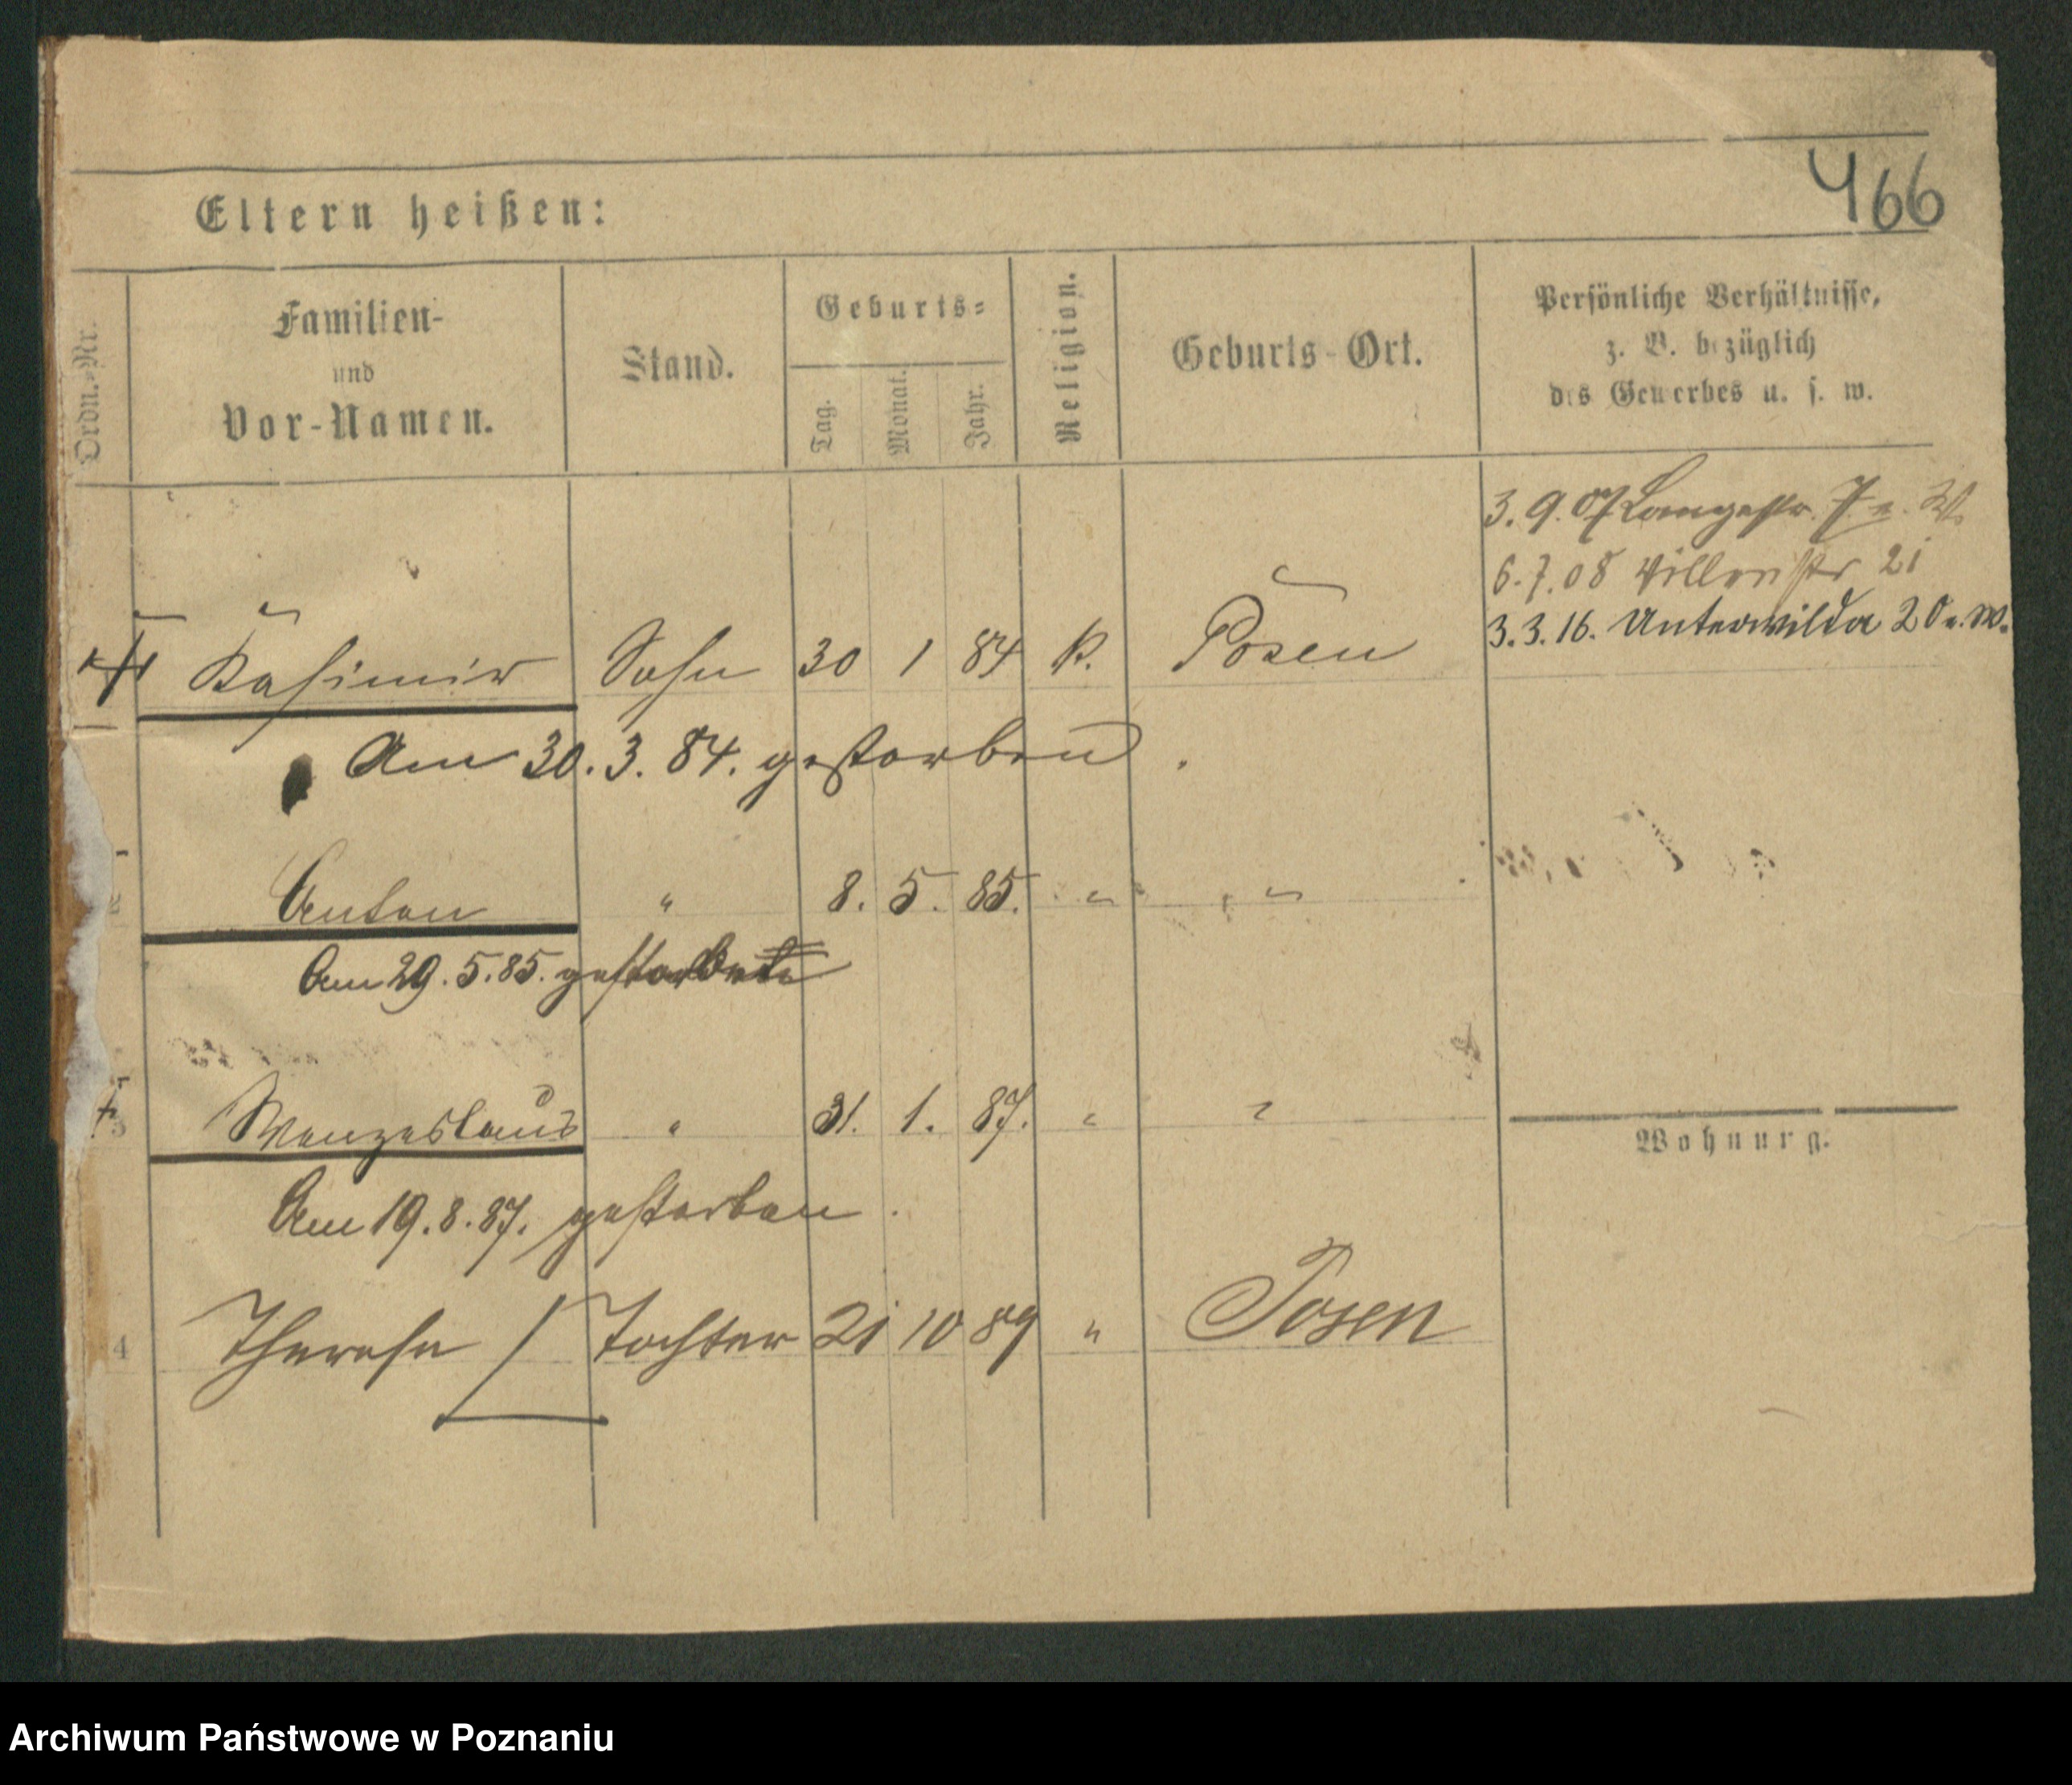 466
Eltern heißen:
Ordn.-Nr.
Familien-
und
Vor-Namen.
Stand.
Geburts-
Tag.
Monat.
Jahr.
Religion.
Geburts-Ort.
Persönliche Verhältnisse,
z. B. bezüglich
des Gewerbes u. s. w.
3.9.07 Langestr. 7 v. W.
6.7.08 Villenstr 21
3.3.16. Unterwilda 20 v. W.
Kasimir Sohn 30 1 84 k. Posen
Am 30.3.84. gestorben.
Anton " 8. 5. 85. " "
Am 29.5.85. gestorben
3 Wenzeslaus " 31. 1. 87. " "
Wohnung.
Am 19.8.87. gestorben.
4 Therese Tochter 21 10 89 " Posen
Archiwum Państwowe w Poznaniu